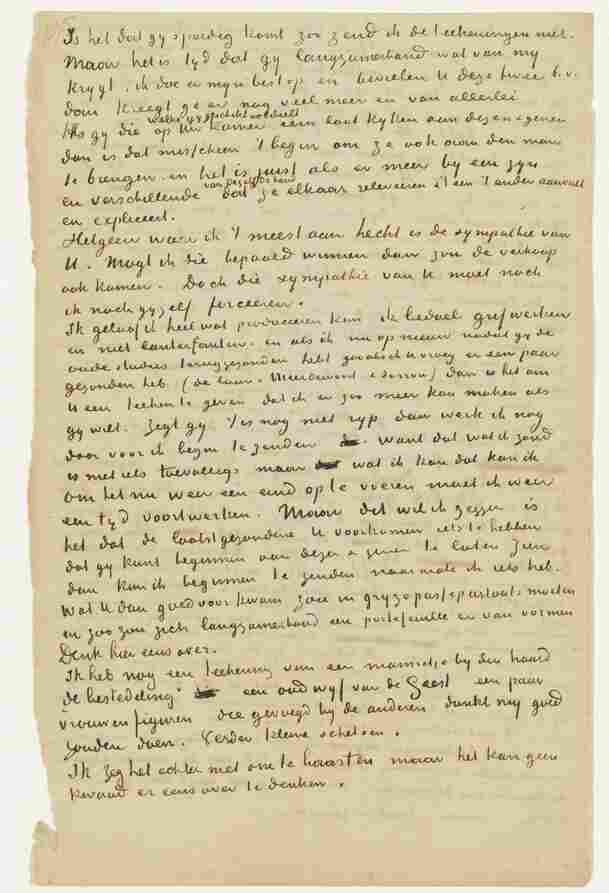 Is het dat gy spoedig komt zoo zend ik de teekeningen niet.
Maar het is tyd dat gy langzamerhand wat van my
krygt, ik doe er myn best op en bevielen U deze twee b.v.
dan kreegt ge er nog veel meer en van allerlei
welke gy geschikt oordeelt
Als gy die op Uw kamer eens laat kyken aan dezen en genen
dan is dat misschien 't begin om ze ook aan den man
te brengen. en het is juist als er meer by een zyn
van dezelfde hand
en verschillende dat ze elkaar releveeren & 't een 't ander aanvult
en expliceert.
Hetgeen waar ik 't meest aan hecht is de sympathie van
U. Mogt ik die bepaald winnen dan zou de verkoop
ook komen. Doch die sympathie van U moet noch
ik noch gyzelf forceeren.
Ik geloof ik heel wat produceeren kan ik bedoel gryf werken
en niet lanterfanten. en als ik nu op nieuw nadat gy de
oude studies teruggezonden hebt zooals ik U vroeg er een paar
gezonden heb (de laan Meerdervoort & Sorrow) dan is het om
U een teeken te geven dat ik er zoo meer kan maken als
gy wilt. Zegt gy 't is nog niet ryp dan werk ik nog
door voor ik begin te zenden want dat wat ik zond
is niet iets toevalligs maar wat ik kan dat kan ik
om het nu weer een eind op te voeren moet ik weer
een tyd voortwerken. Maar dit wil ik zeggen is
het dat de laatstgezondene U voorkomen iets te hebben
dat gy kunt beginnen aan dezen en genen te laten zien
dan kan ik beginnen te zenden naarmate ik iets heb.
Wat U dan goed voorkwam zou in gryze passepartouts moeten
en zoo zou zich langzamerhand een portefeuille er van vormen
Denk hier eens over.
Ik heb nog een teekening van een mannetje by den haard
de bestedeling een oud wyf van de Geest een paar
vrouwenfiguren die gevoegd by de anderen dunkt my goed
zouden doen. Verder kleine schetsen.
Ik zeg het echter niet om te haasten maar het kan geen
kwaad er eens over te denken.